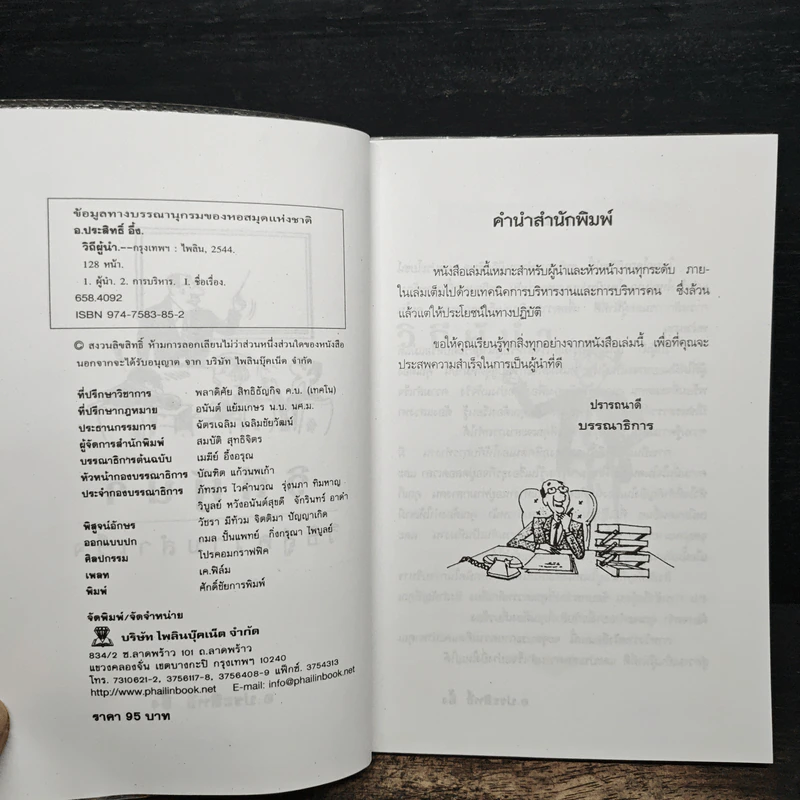 ข้อมูลทางบรรณานุกรมของหอสมุดแห่งชาติ
อ.ประสิทธิ์ อึ้ง.
วิถีผู้นำ.--กรุงเทพฯ : ไพลิน, 2544.
128 หน้า.
1. ผู้นำ. 2. การบริหาร. I. ชื่อเรื่อง.
658.4092
ISBN 974-7583-85-2
© สงวนลิขสิทธิ์ ห้ามการลอกเลียนไม่ว่าส่วนหนึ่งส่วนใดของหนังสือ
นอกจากจะได้รับอนุญาต จาก บริษัท ไพลินบุ๊คเน็ต จำกัด
ที่ปรึกษาวิชาการ พลาดิศัย สิทธิธัญกิจ ค.บ. (เทคโน)
ที่ปรึกษากฎหมาย อนันต์ แย้มเกษร น.บ. นศ.ม.
ประธานกรรมการ ฉัตรเฉลิม เฉลิมชัยวัฒน์
ผู้จัดการสำนักพิมพ์ สมบัติ สุทธิจิตร
บรรณาธิการต้นฉบับ เมฆีย์ อึ้งอรุณ
หัวหน้ากองบรรณาธิการ บัณฑิต แก้วนพเก้า
ประจำกองบรรณาธิการ ภัทรภร ไวคำนวณ รุ่งนภา ทิมหาญ
วิบูลย์ หวังอนันต์สุขดี จักรินทร์ อาดำ
พิสูจน์อักษร วัชรา มีท้วม จิตติมา ปัญญาเกิด
ออกแบบปก กมล ปั้นแพทย์ กิ่งกรุณา ไพบูลย์
ศิลปกรรม โปรคอมกราฟฟิค
เพลท เค.ฟิล์ม
พิมพ์ ศักดิ์ชัยการพิมพ์
จัดพิมพ์/จัดจำหน่าย
บริษัท ไพลินบุ๊คเน็ต จำกัด
834/2 ซ.ลาดพร้าว 101 ถ.ลาดพร้าว
แขวงคลองจั่น เขตบางกะปิ กรุงเทพฯ 10240
โทร. 7310621-2, 3756117-8, 3756408-9 แฟ็กซ์. 3754313
http://www.phailinbook.net E-mail: info@phailinbook.net
ราคา 95 บาท
คำนำสำนักพิมพ์
หนังสือเล่มนี้เหมาะสำหรับผู้นำและหัวหน้างานทุกระดับ ภาย-
ในเล่มเต็มไปด้วยเทคนิคการบริหารงานและการบริหารคน ซึ่งล้วน
แล้วแต่ให้ประโยชน์ในทางปฏิบัติ
ขอให้คุณเรียนรู้ทุกสิ่งทุกอย่างจากหนังสือเล่มนี้ เพื่อที่คุณจะ
ประสพความสำเร็จในการเป็นผู้นำที่ดี
ปรารถนาดี
บรรณาธิการ